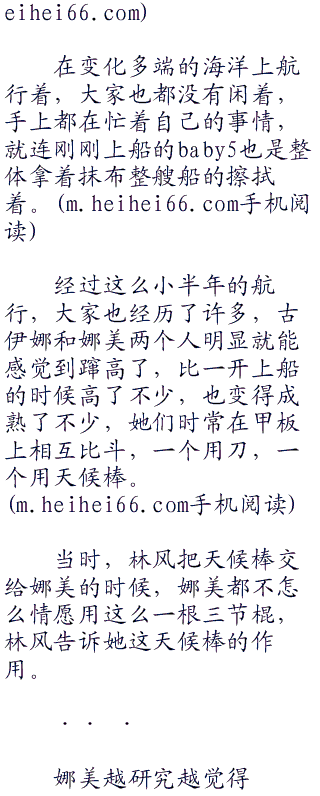 eihei66.com)
在变化多端的海洋上航
行着，大家也都没有闲着，
手上都在忙着自己的事情，
就连刚刚上船的baby5也是整
体拿着抹布整艘船的擦拭
着。(m.heihei66.com手机阅
读)
经过这么小半年的航
行，大家也经历了许多，古
伊娜和娜美两个人明显就能
感觉到蹿高了，比一开上船
的时候高了不少，也变得成
熟了不少，她们时常在甲板
上相互比斗，一个用刀，一
个用天候棒。
(m.heihei66.com手机阅读)
当时，林风把天候棒交
给娜美的时候，娜美都不怎
么情愿用这么一根三节棍，
林风告诉她这天候棒的作
用。
．．．
娜美越研究越觉得